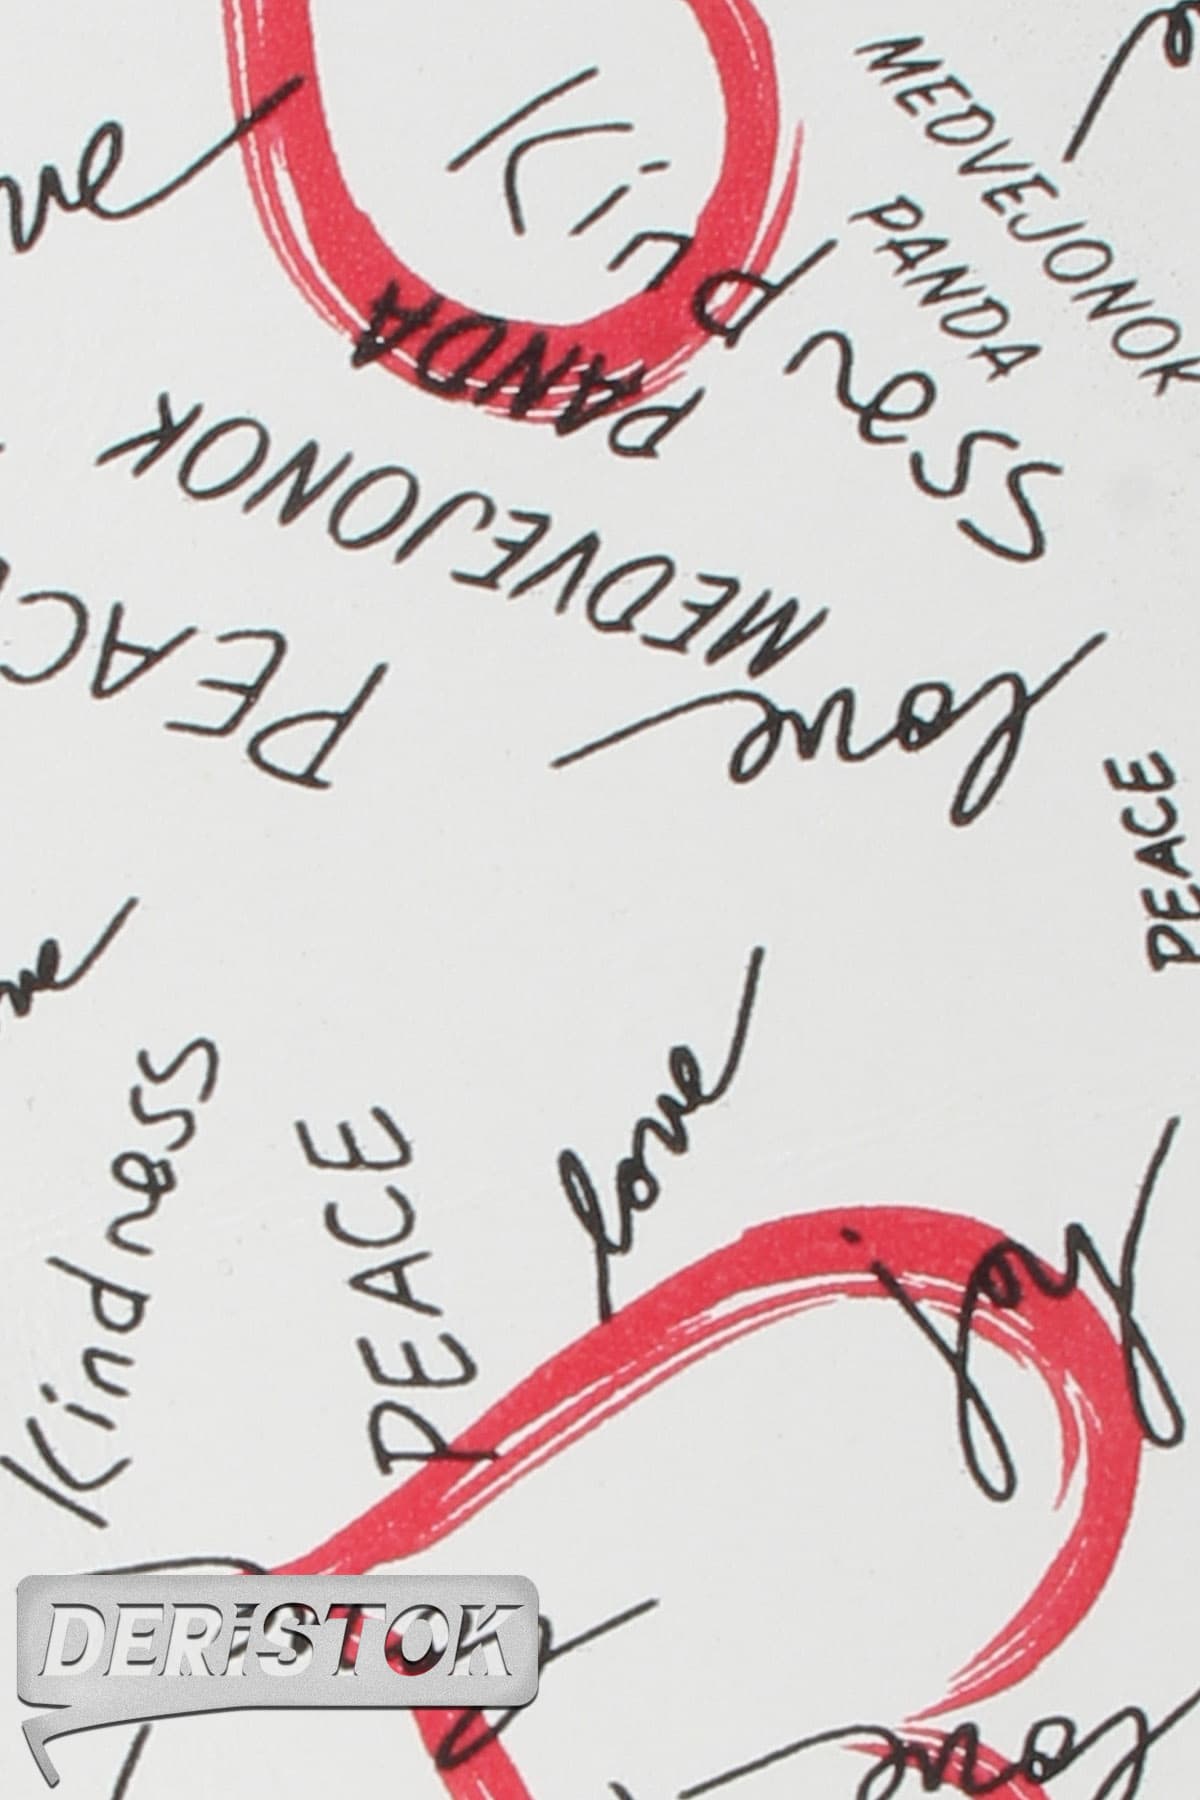 MEDVEJONOK
PANDA
Kindness
PANDA
MEDVEJONOK
PEACE
love
PEACE
love
Kindness
PEACE
joy
DERİSTOK
love